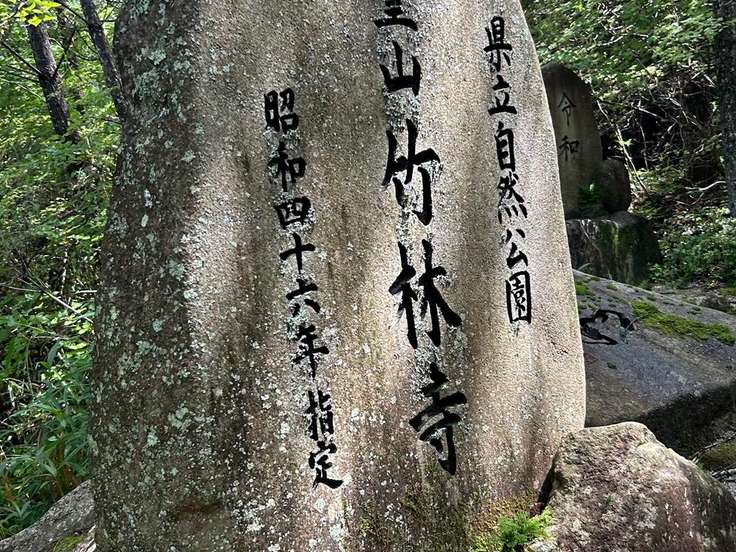 県立自然公園
山竹林寺
昭和四十六年指定
令和